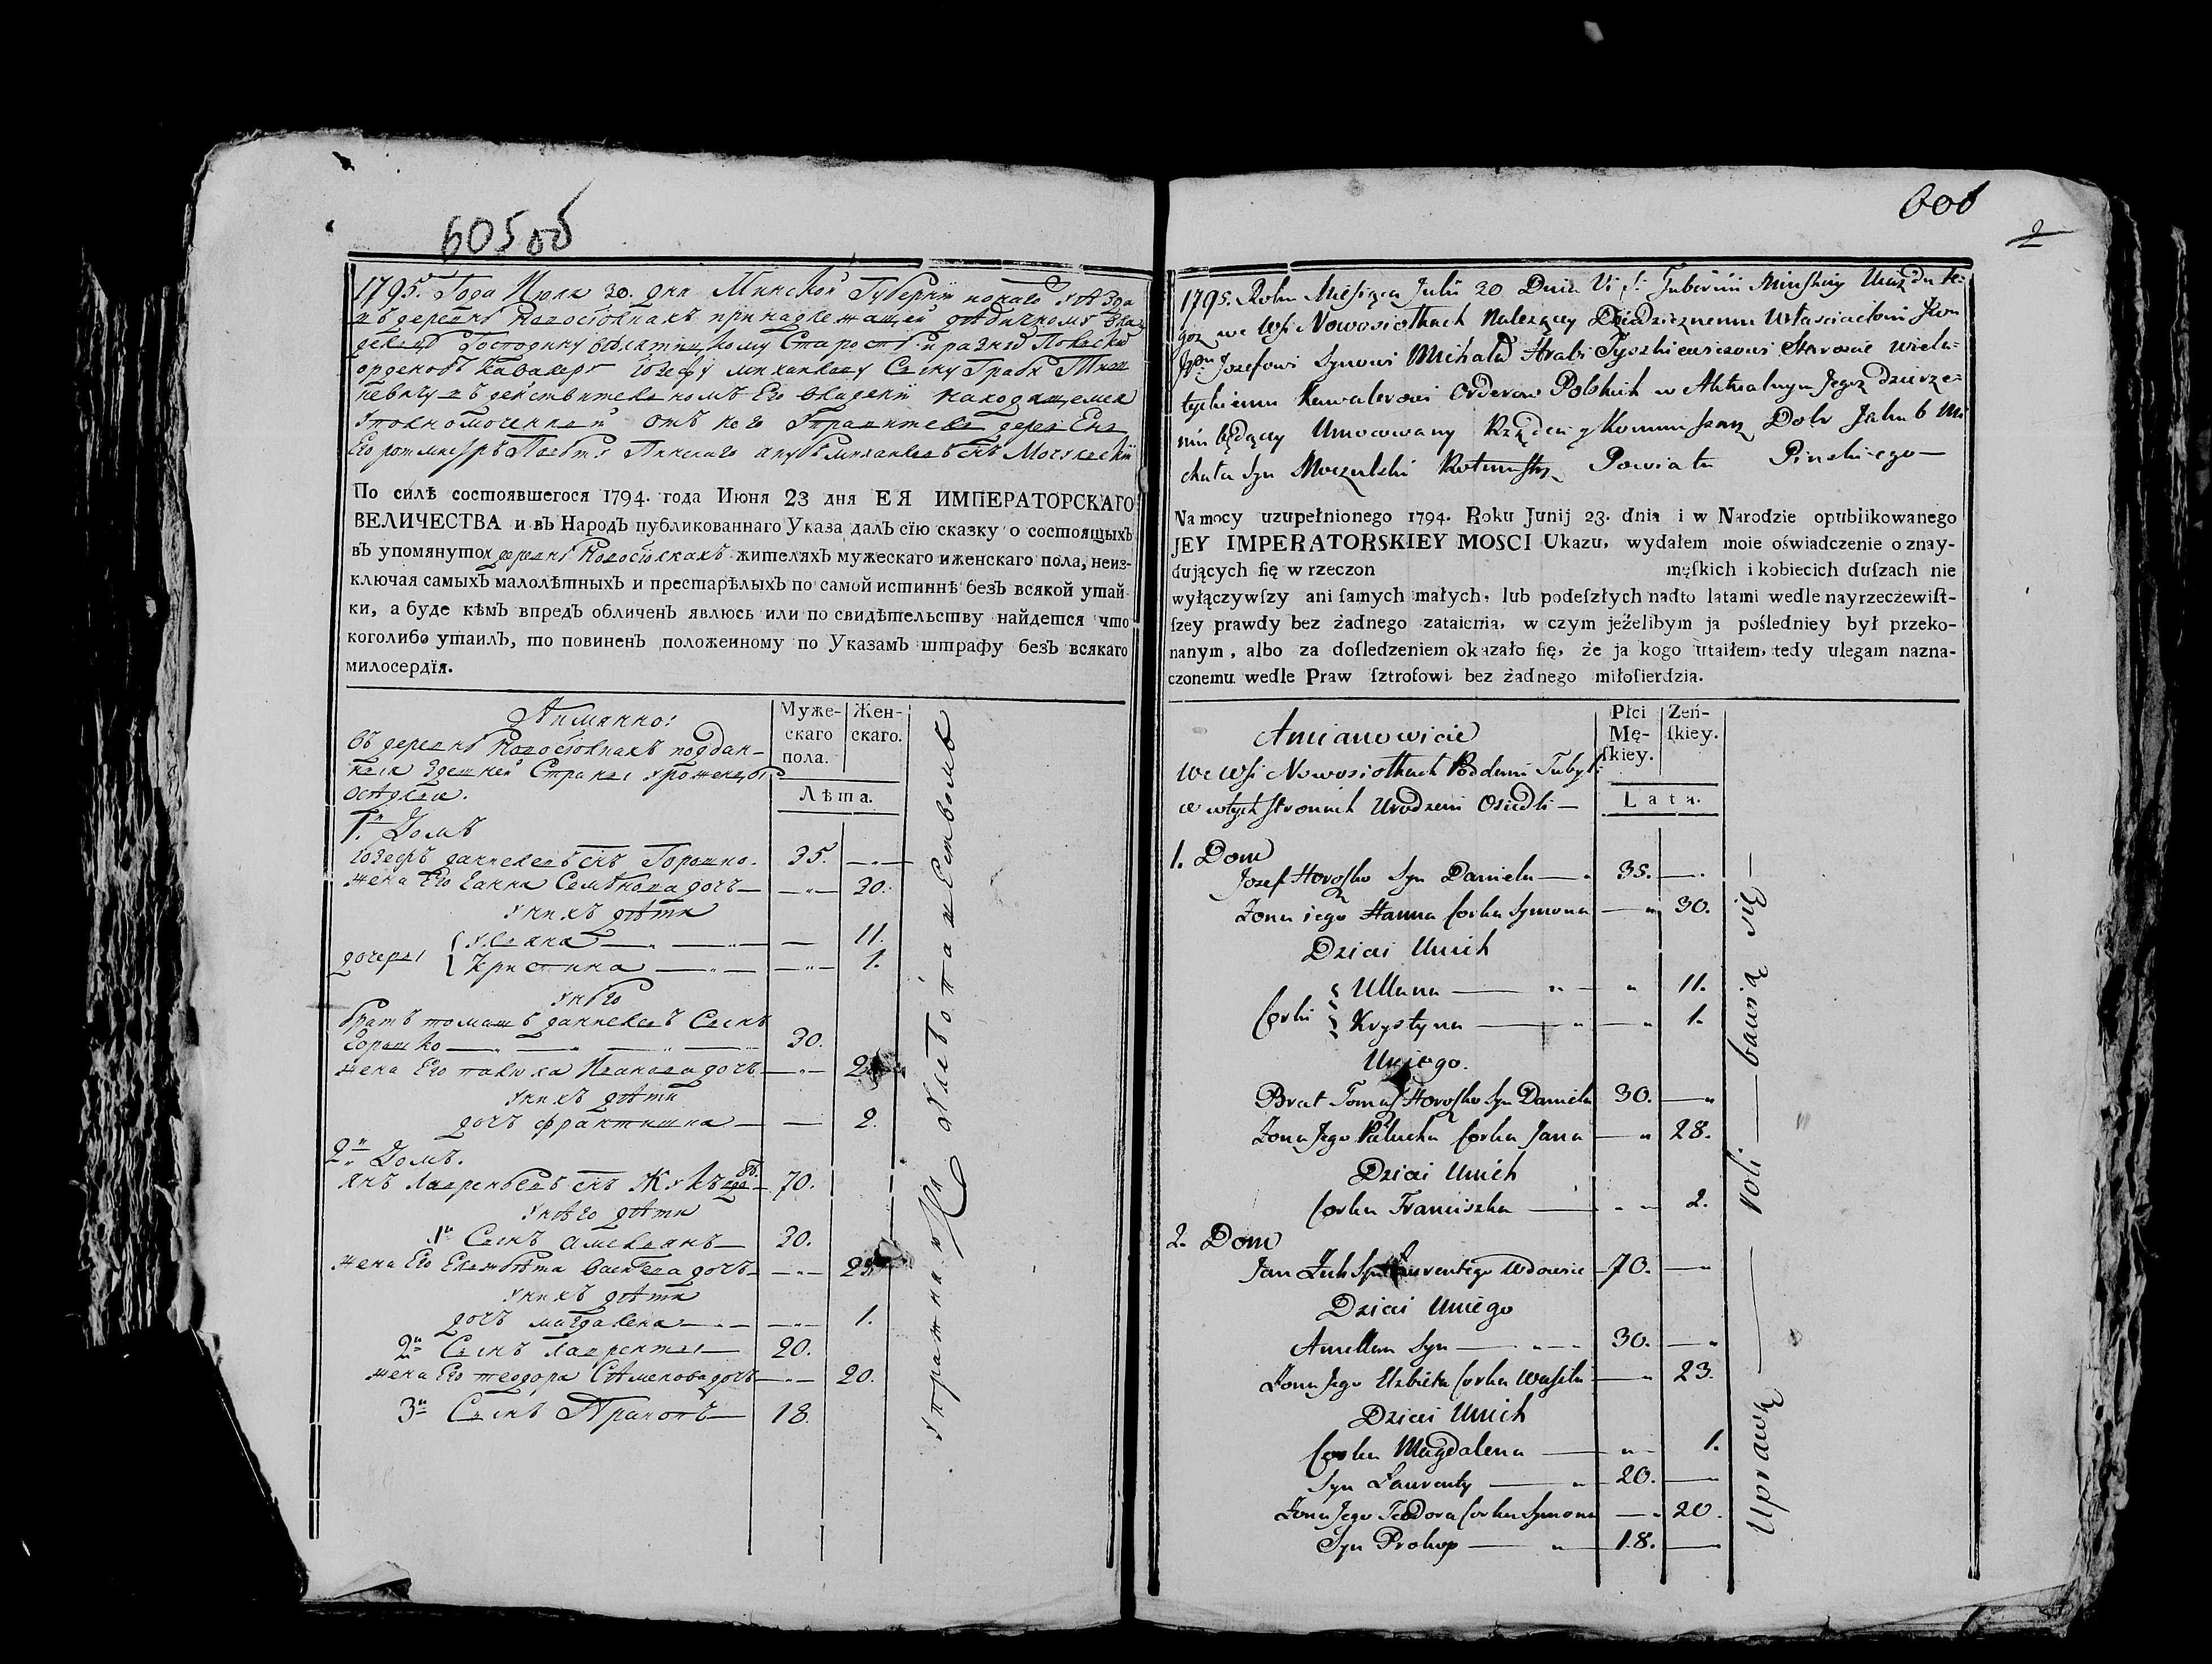 605 об
1795. Года Июля 30. дня Минской Губернїи
въ деревнѣ Новосіолкахъ принадлежащей дѣдичному
Господину Старостѣ и разныхъ Польскихъ
орденовъ Кавалеру Іозефу Михайлову Сыну Графу
въ действительномъ Его владенїи находящемся
Уполномоченный отъ него Управитель
Его ротмистръ Повѣта Пинскаго
По силѣ состоявшегося 1794. года Июня 23 дня ЕЯ ИМПЕРАТОРСКАГО
ВЕЛИЧЕСТВА и въ Народъ публикованнаго Указа далъ сїю сказку о состоящыхъ
въ упомянутой деревнѣ Новосіолкахъ жителяхъ мужескаго иженскаго пола, неиз-
ключая самыхъ малолѣтныхъ и престарѣлыхъ по самой истиннѣ безъ всякой утай
ки, а буде кѣмъ впредъ обличенъ явлюсь или по свидѣтельству найдется что
коголибо утаилъ, то повиненъ положенному по Указамъ штрафу безъ всякаго
милосердїя.
Аимянно:
Муже-
скаго
пола.
Жен-
скаго.
Лѣта.
въ деревнѣ Новосіолкахъ поддан-
ныя здешней Страны урожены
оселыя.
1й Домъ
Іозефъ данилевъ снъ Горошко. 35.
жена Его Ганна Семѣнова дочъ 30.
у нихъ дѣти
дочеры { Уляна 11.
Кристина 1.
у него
братъ томашъ данилевъ Сынъ
Горошко 30.
жена Его палюха Иванова дочъ
у нихъ дѣти
дочъ францишка 2.
2й Домъ.
янъ Лаврентьевъ снъ Жукъ вдовъ 70.
у него дѣти
1й Сынъ амельянъ 30.
жена Его Елжбѣта васілева дочъ 23.
у нихъ дѣти
дочъ магдалена 1.
2й Сынъ лавренты 20.
жена Его теодора Сѣменова дочъ 20.
3й Сынъ Пракопъ 18.
упражняются хлебопашествомъ
606
2
1795. Roku Miesiąca Julii 30 Dnia Gubernii Minskiey Uiazdu te-
goz we Wsi Nowosiołkach Nalezący Dziedzicznemu Własciacielowi
Józefowi Synowi Michała Hrabi Tyszkiewiczowi Staroscie Wiela-
tyckiemu Kawalerowi Orderow Polskich w Aktualnym Jegoz dzierze-
niu będący Umocowany Rządca y Kommissarz Dobr Jakub Mi
chała Syn Moczulski Rotmistrz Powiatu Pinskiego
Na mocy uzupełnionego 1794. Roku Junij 23. dnia i w Narodzie opublikowanego
JEY IMPERATORSKIEY MOSCI Ukazu, wydałem moie oświadczenie o znay-
dujących ſię w rzeczon męſkich i kobiecich duſzach nie
wyłączywſzy ani ſamych małych, lub podeſzłych nadto latami wedle nayrzeczewiſt-
ſzey prawdy bez żadnego zataienia, w czym jeżelibym ja pośledniey był przeko-
nanym, albo za doſledzeniem okazało ſię, że ja kogo utaiłem, tedy ulegam nazna-
czonemu wedle Praw ſztrofowi bez żadnego miłoſierdzia.
Amianowicie
Płci
Mę-
ſkiey.
Zeń-
ſkiey.
Lata.
We Wsi Nowosiołkach Poddani Tubyl
w wtych stronach Urodzeni Osiedli
1. Dom
Jozef Horoszko Syn Daniela 35.
Zona iego Hanna Corka Symona 30.
Dzieci Unich
Corki { Ullana 11.
Krystyna 1.
Uniego.
Brat Tomasz Horoszko Syn Daniela 30.
Zona Jego Pałucha Corka Jana 28.
Dzieci Unich
Corka Franciszka 2.
2. Dom
Jan Żuk Syn Laurentego Wdowiec 70.
Dzieci Uniego
Amellan Syn 30.
Zona Jego Elzbieta Corka Wasila 23.
Dzieci Unich
Corka Magdalena 1.
Syn Laurenty 20.
Zona Jego Teodora Corka Symona 20.
Syn Prokop 18.
Uprawą roli bawią się